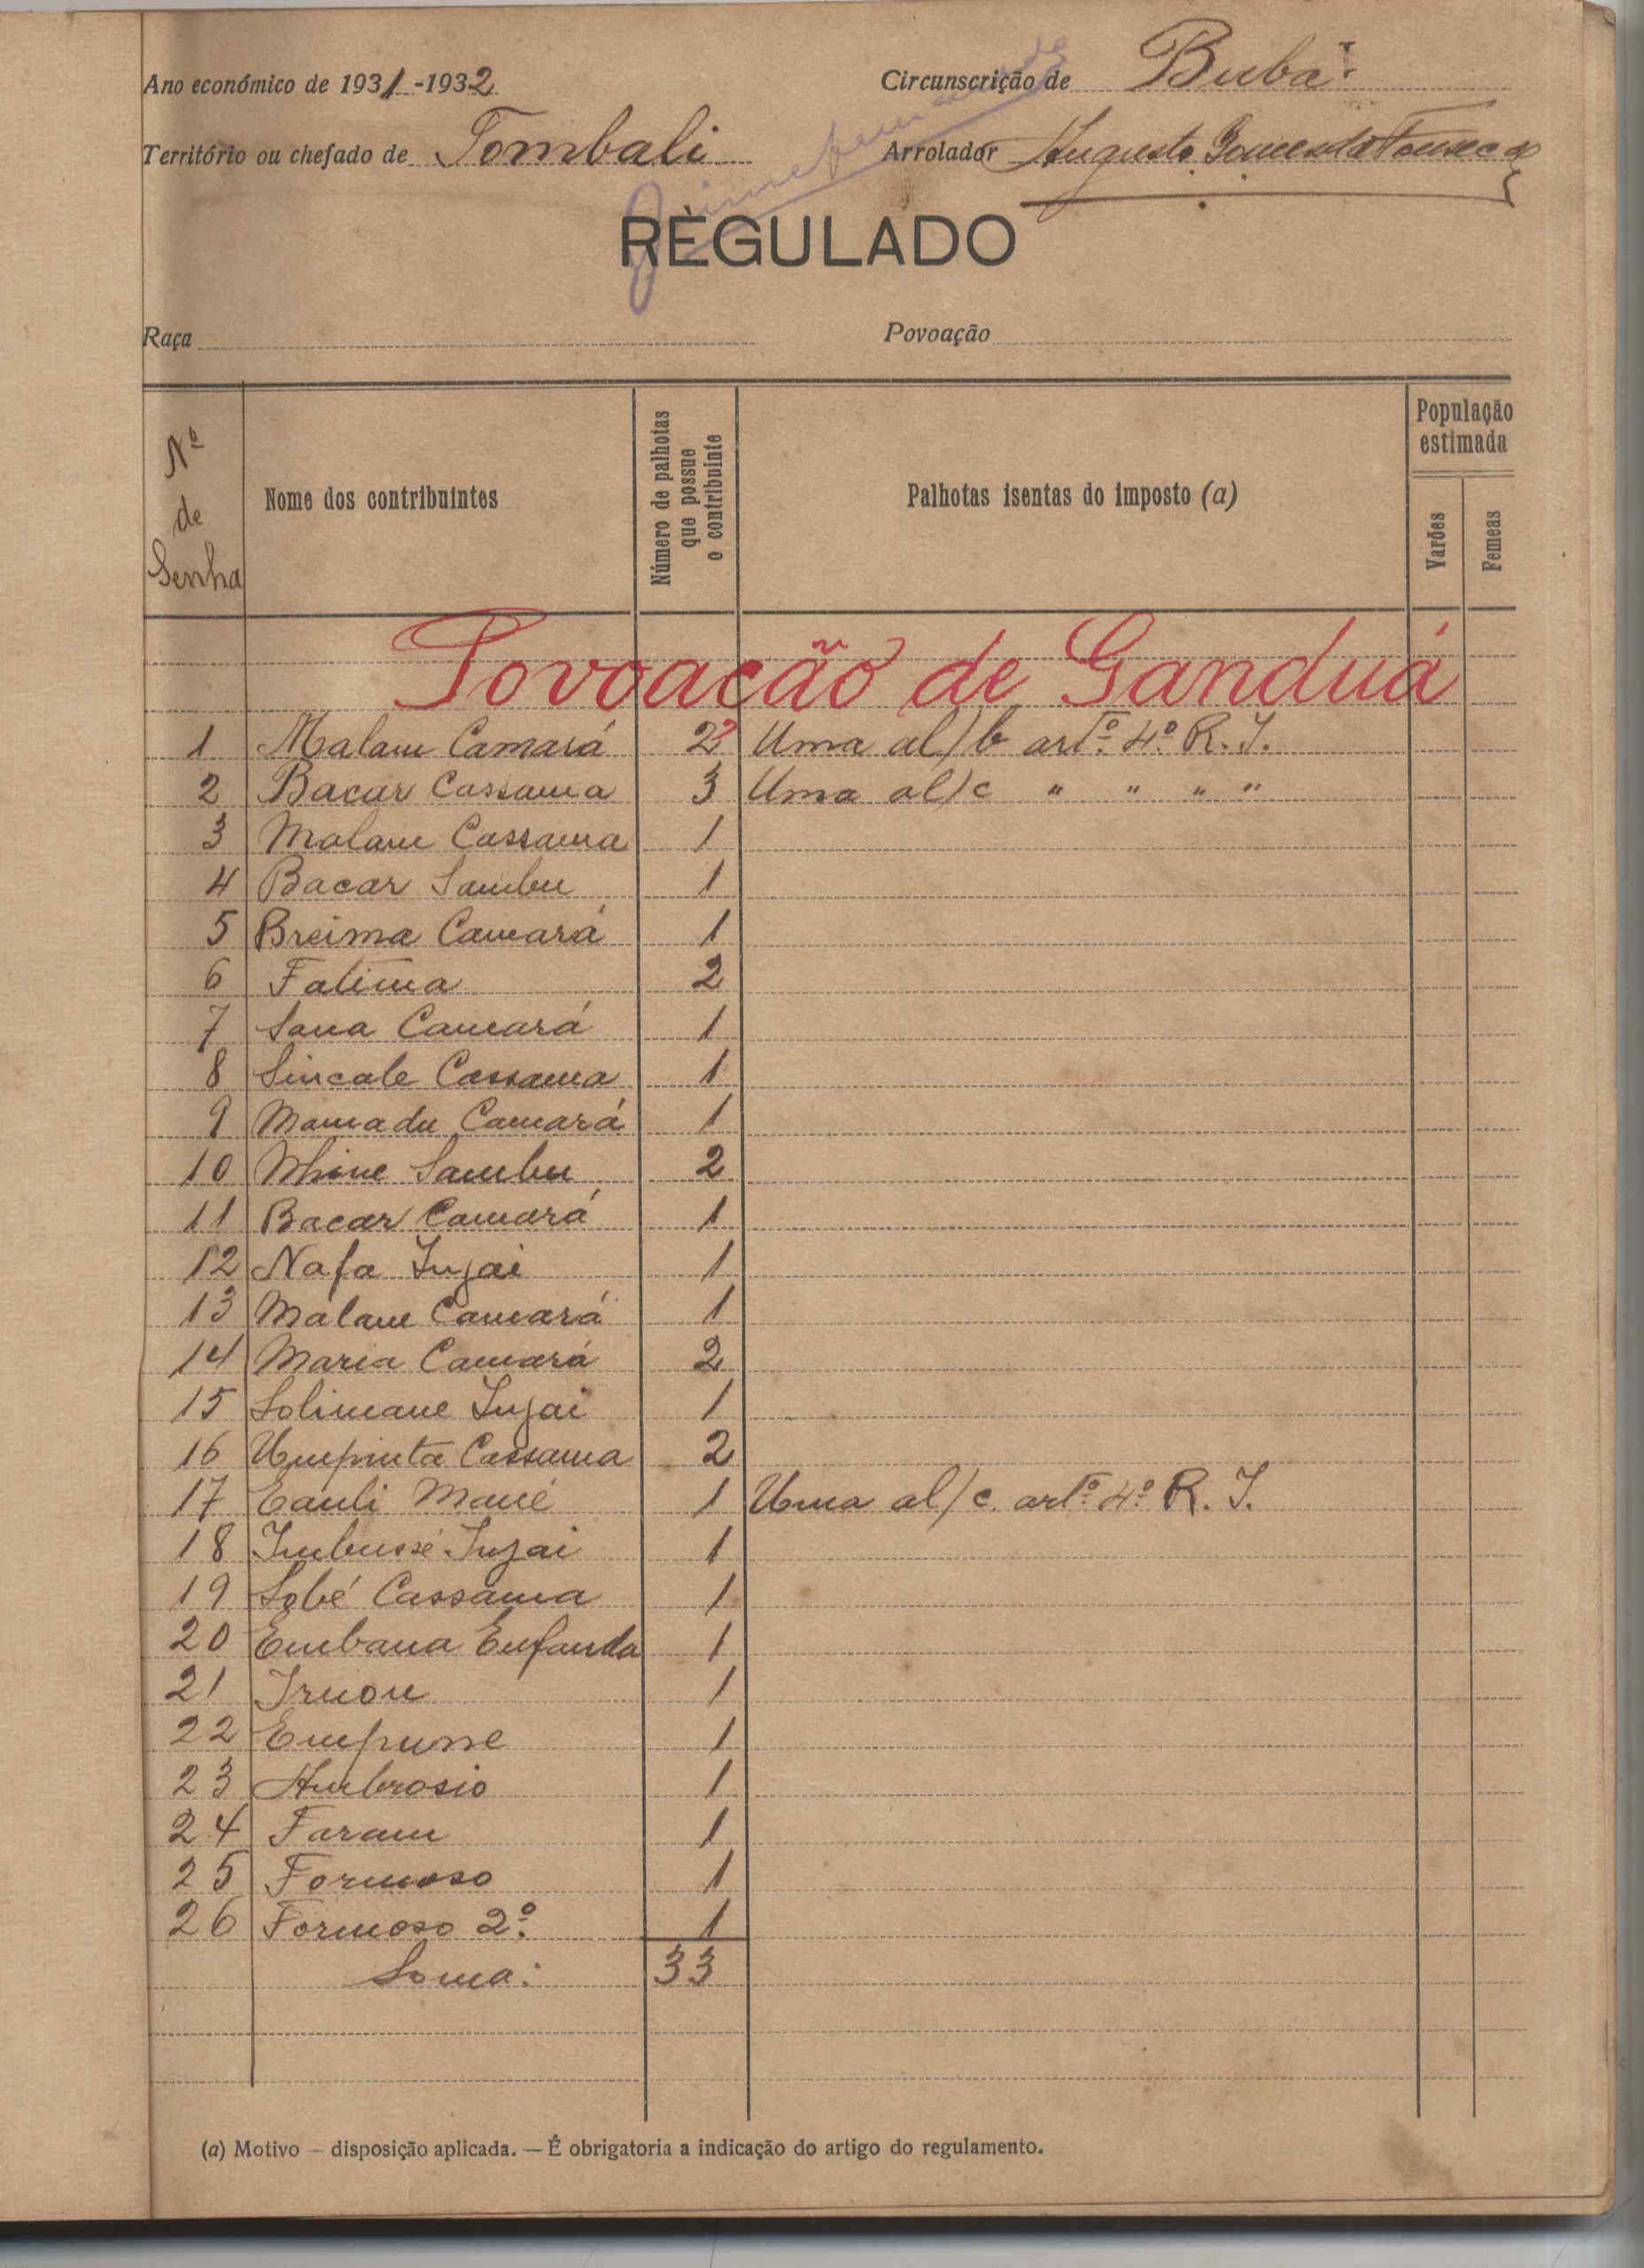 Ano económico de 1931-1932
Circunscrição de Buba
Território ou chefado de Tombali
Arrolador Augusto Gomes da Fonseca
REGULADO
Raça
Povoação
Nº de Senha
Nome dos contribuintes
Número de palhotas que possue o contribuinte
Palhotas isentas do imposto (a)
População estimada
Varões
Femeas
Povoação de Ganduá
1 Malam Camará 2 Uma al/b artº. 4º. R. I.
2 Bacar Cassama 3 Uma al/c " " " "
3 Malam Cassama 1
4 Bacar Sambu 1
5 Breima Camará 1
6 Fatima 2
7 Sana Camará 1
8 Sincale Cassama 1
9 Mamadu Camará 1
10 Sambu 2
11 Bacar Camará 1
12 Nafa Injai 1
13 Malam Camará 1
14 Maria Camará 2
15 Solimane Injai 1
16 Umpinta Cassama 2
17 Cauli Mané 1 Uma al/c. artº. 4º. R. I.
18 Imbussé Injai 1
19 Sobé Cassama 1
20 Embana Enfanda 1
21 1
22 1
23 Ambrosio 1
24 Faram 1
25 Formoso 1
26 Formoso 2º. 1
Soma: 33
(a) Motivo — disposição aplicada. — É obrigatoria a indicação do artigo do regulamento.